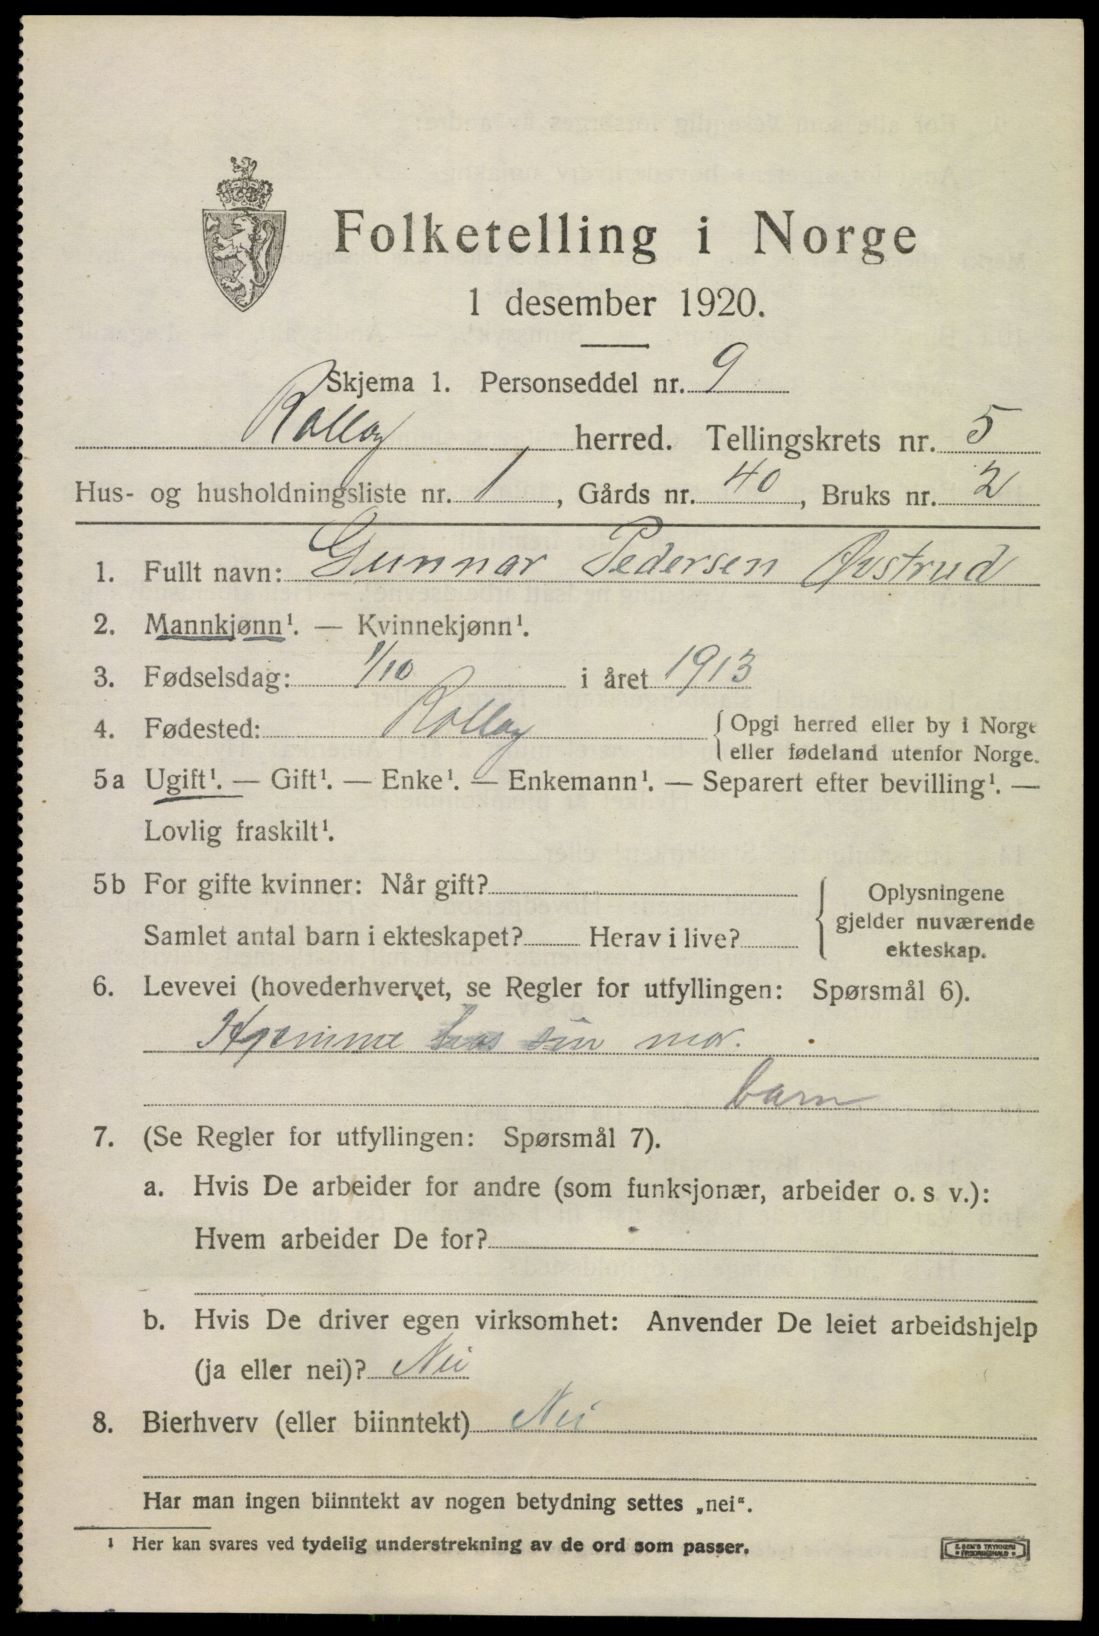 Folketelling i Norge
1 desember 1920.
Skjema 1. Personseddel nr. 9
Rollag herred. Tellingskrets nr. 5
Hus- og husholdningsliste nr. 1, Gårds nr. 40, Bruks nr. 2
1. Fullt navn: Gunnar Pedersen Øvstrud
2. Mannkjønn¹. — Kvinnekjønn¹.
3. Fødselsdag: 1/10 i året 1913
4. Fødested: Rollag { Opgi herred eller by i Norge
eller fødeland utenfor Norge.
5a Ugift¹. — Gift¹. — Enke¹. — Enkemann¹. — Separert efter bevilling¹. —
Lovlig fraskilt¹.
5b For gifte kvinner: Når gift?
Samlet antal barn i ekteskapet? Herav i live?
{ Oplysningene
gjelder nuværende
ekteskap.
6. Levevei (hovederhvervet, se Regler for utfyllingen: Spørsmål 6).
Hjemme hos sin mor.
barn
7. (Se Regler for utfyllingen: Spørsmål 7).
a. Hvis De arbeider for andre (som funksjonær, arbeider o. s v.):
Hvem arbeider De for?
b. Hvis De driver egen virksomhet: Anvender De leiet arbeidshjelp
(ja eller nei)? Nei
8. Bierhverv (eller biinntekt) Nei
Har man ingen biinntekt av nogen betydning settes „nei“.
¹ Her kan svares ved tydelig understrekning av de ord som passer.